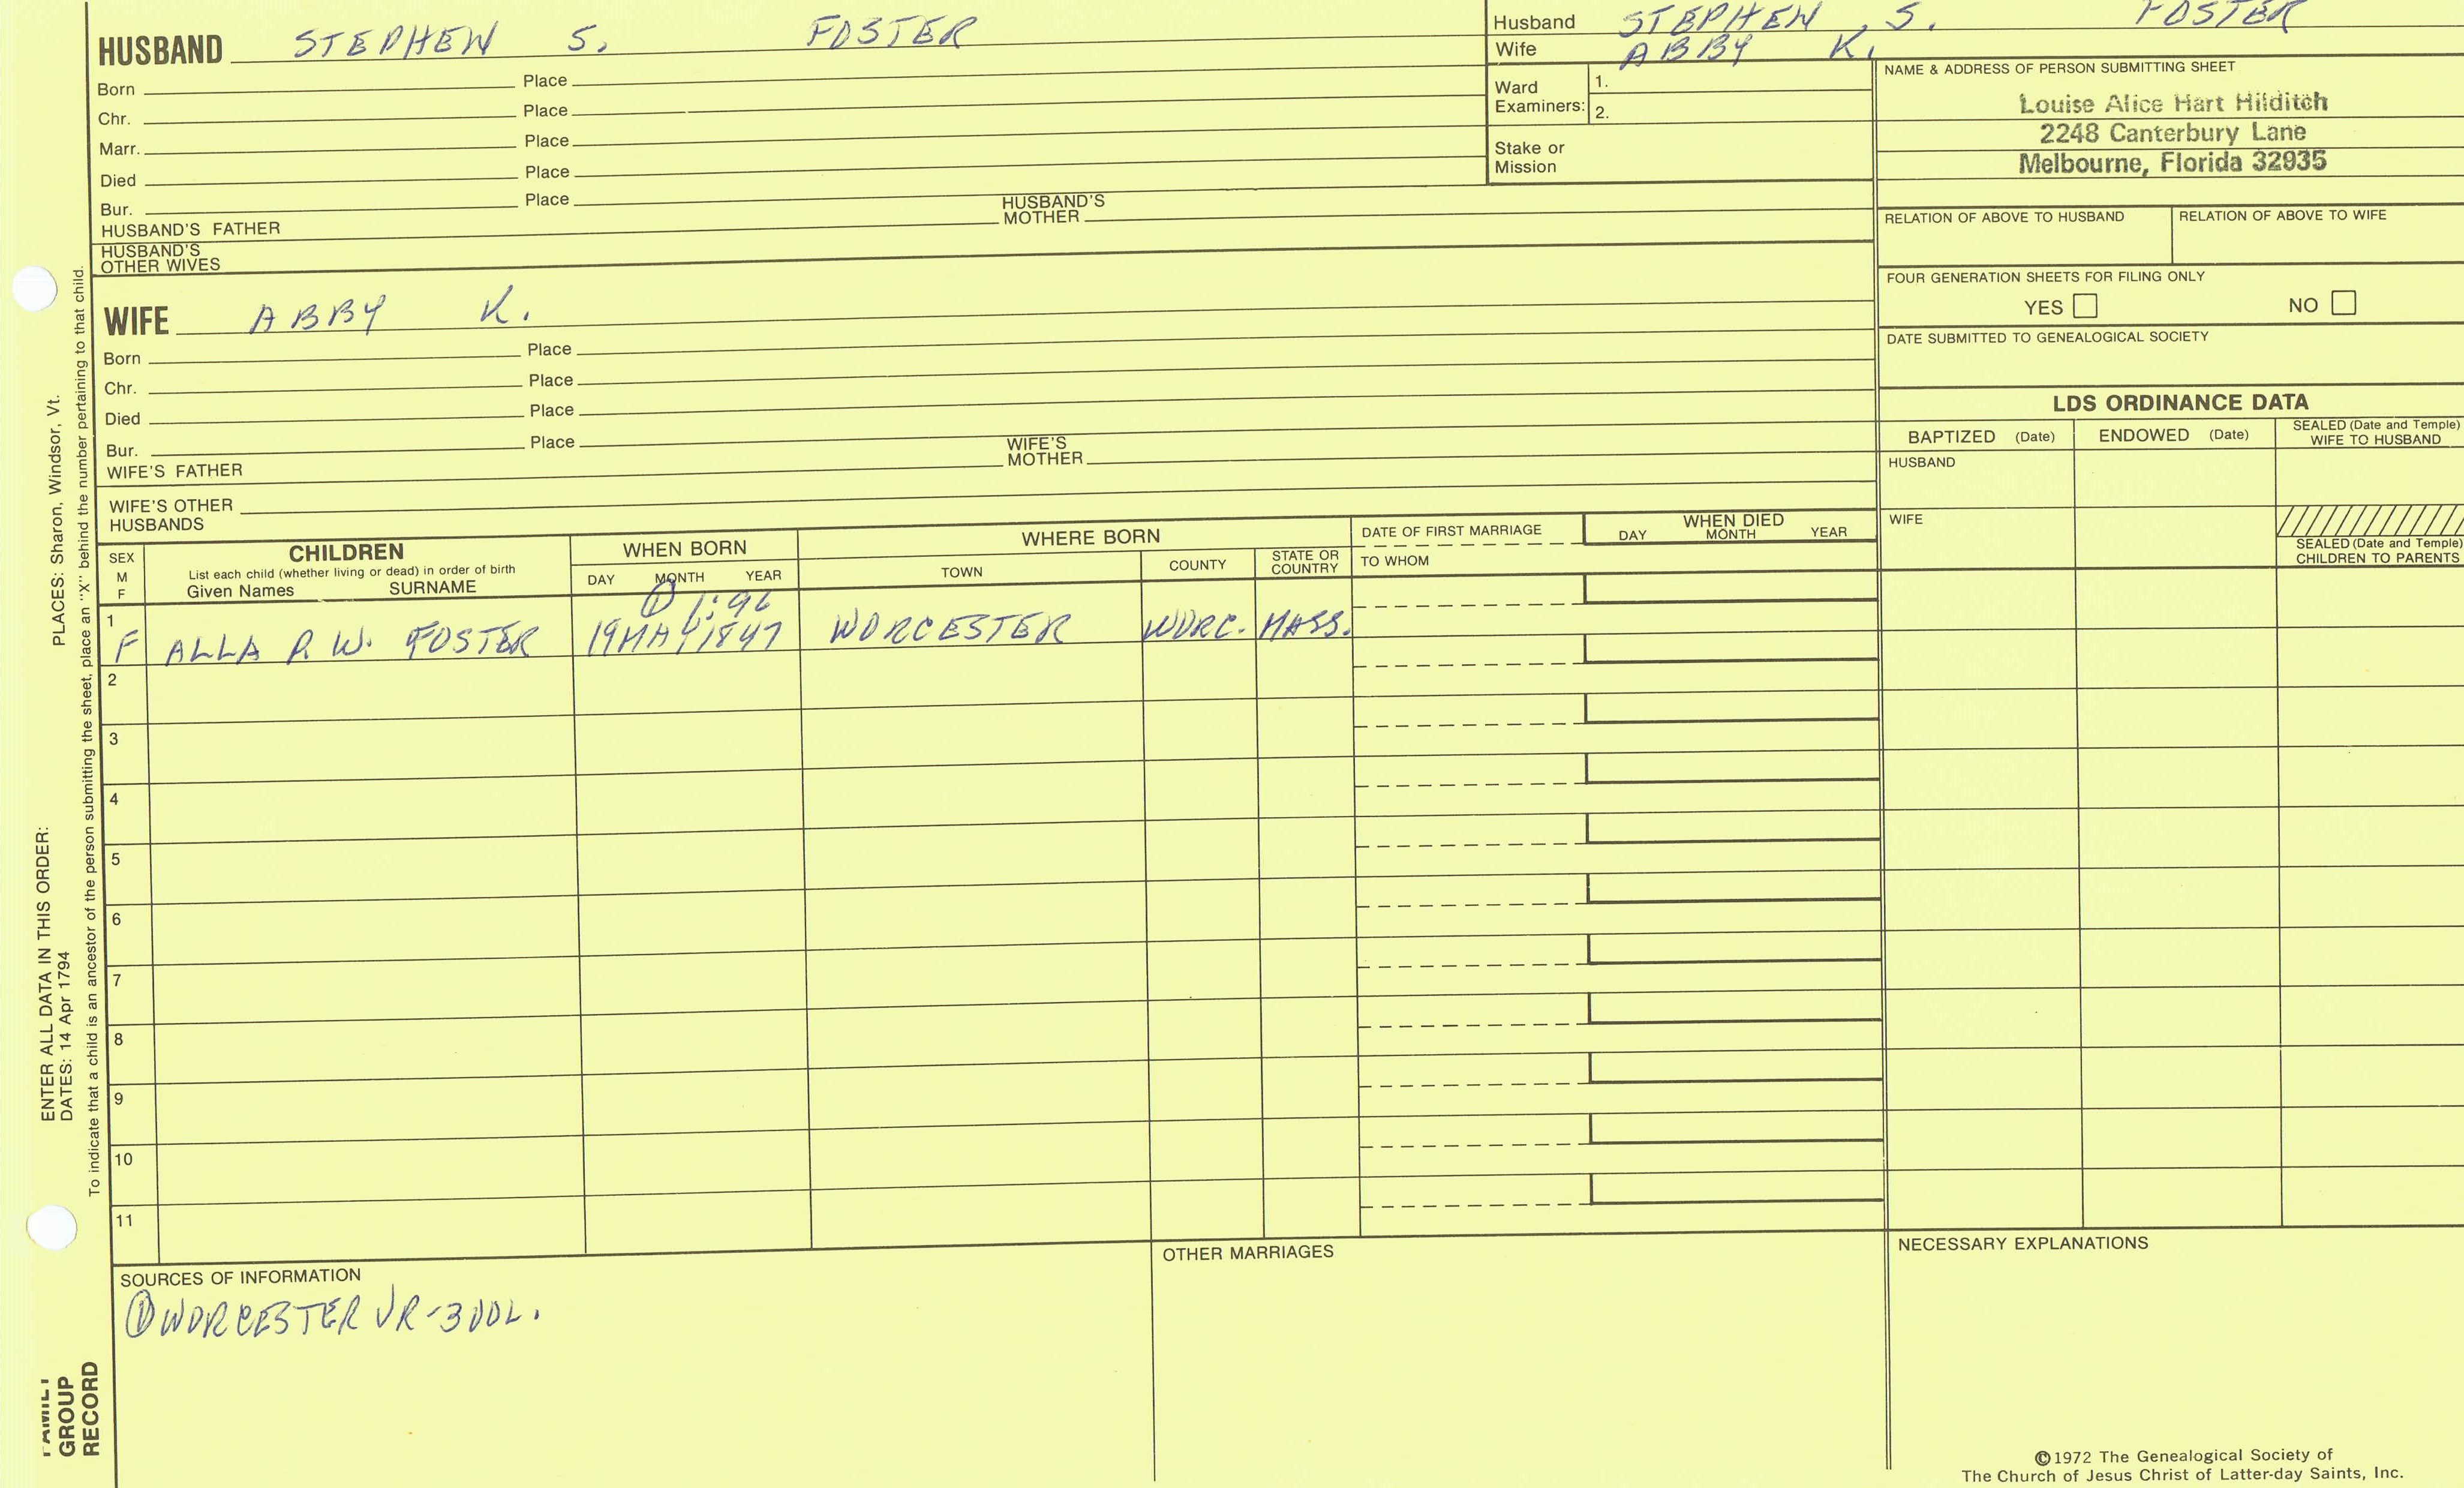 HUSBAND STEPHEN S. FOSTER
Born Place
Chr. Place
Marr. Place
Died Place
Bur. Place
HUSBAND'S FATHER HUSBAND'S MOTHER
HUSBAND'S OTHER WIVES
WIFE ABBY K.
Born Place
Chr. Place
Died Place
Bur. Place
WIFE'S FATHER WIFE'S MOTHER
WIFE'S OTHER HUSBANDS
Husband STEPHEN S. FOSTER
Wife ABBY K.
Ward Examiners: 1.
2.
Stake or Mission
NAME & ADDRESS OF PERSON SUBMITTING SHEET
Louise Alice Hart Hilditch
2248 Canterbury Lane
Melbourne, Florida 32935
RELATION OF ABOVE TO HUSBAND RELATION OF ABOVE TO WIFE
FOUR GENERATION SHEETS FOR FILING ONLY
YES NO
DATE SUBMITTED TO GENEALOGICAL SOCIETY
LDS ORDINANCE DATA
BAPTIZED (Date) ENDOWED (Date) SEALED (Date and Temple) WIFE TO HUSBAND
HUSBAND
WIFE
SEALED (Date and Temple) CHILDREN TO PARENTS
SEX M F
CHILDREN
List each child (whether living or dead) in order of birth
Given Names SURNAME
WHEN BORN
DAY MONTH YEAR
WHERE BORN
TOWN COUNTY STATE OR COUNTRY
DATE OF FIRST MARRIAGE
TO WHOM
WHEN DIED
DAY MONTH YEAR
① 1:96
1 F ALLA P. W. FOSTER 19 MAY 1847 WORCESTER WORC. MASS.
2
3
4
5
6
7
8
9
10
11
SOURCES OF INFORMATION
① WORCESTER VR-300L.
OTHER MARRIAGES
NECESSARY EXPLANATIONS
©1972 The Genealogical Society of
The Church of Jesus Christ of Latter-day Saints, Inc.
ENTER ALL DATA IN THIS ORDER:
DATES: 14 Apr 1794 PLACES: Sharon, Windsor, Vt.
To indicate that a child is an ancestor of the person submitting the sheet, place an "X" behind the number pertaining to that child.
FAMILY
GROUP
RECORD